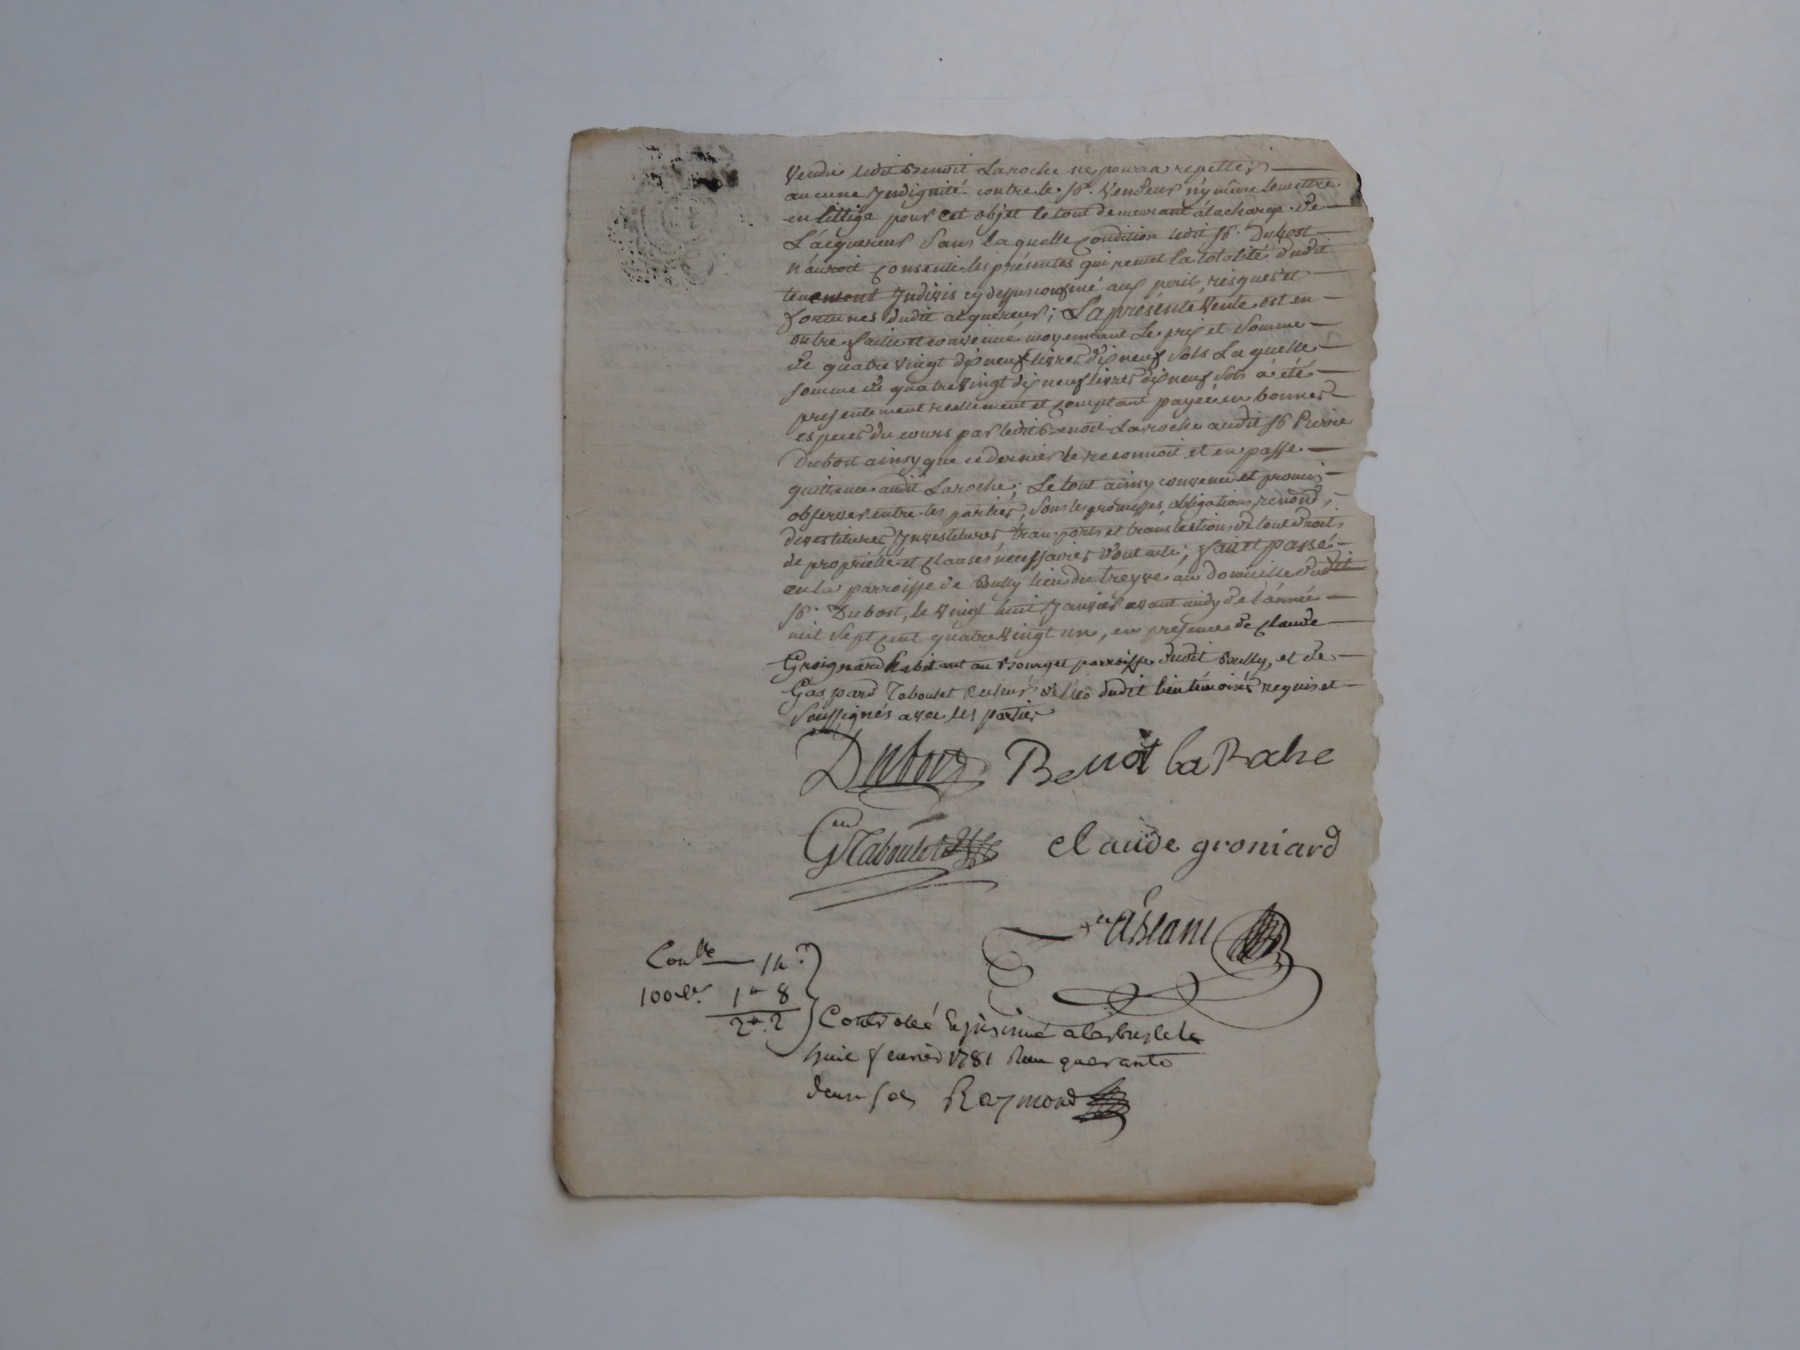 Vendu ledit Benoit Laroche ne pourra repetter
aucune Indignité contre le Sr. Vendeur ny même le mettre
en littige pour cet objet le tout demeurant à la charge de
L'acquereur Sans laquelle condition ledit Sr. Dubost
n'auroit consenti les présentes qui remet la totalité dudit
tenement Indivis cy dessus confiné aux perils, risques et
fortunes dudit acquereur; La présente Vente est en
outre faitte et convenue moyennant le prix et Somme
de quatre Vingt dix neuf livres dix neuf sols Laquelle
somme de quatre Vingt dix neuf livres dix neuf sols a été
presentement reellement et comptant payée en bonnes
especes du cours par ledit Benoit Laroche audit Sr
Dubost ainsy que ce dernier le reconnoit et en passe
quittance audit Laroche; Le tout ainsy convenu et promis
observer entre les parties, Sous les promesses, obligations, renond,
devestitures Investitures, transports et translations de tout droit
de propriété et clauses necessaires dont acte; fait et passé
en la parroisse de Bully lieu du treyve au domicille dudit
Sr. Dubost, le Vingt huit Janvier avant midy de l'année
mil Sept cent quatre Vingt un, en presence de Claude
Groignard habitant au Bourg et parroisse dudit Bully, et de
Gaspard Taboulet dudit lieu témoins requis et
Soussignés avec les parties
Dubost Benoit la Rohe
G Taboulet claude groniard
Conlle 14s
100e dr 1# 8
2#. 2 Controllé le
huit fevrier 1781 Reçu quarante
deux sols Raymond